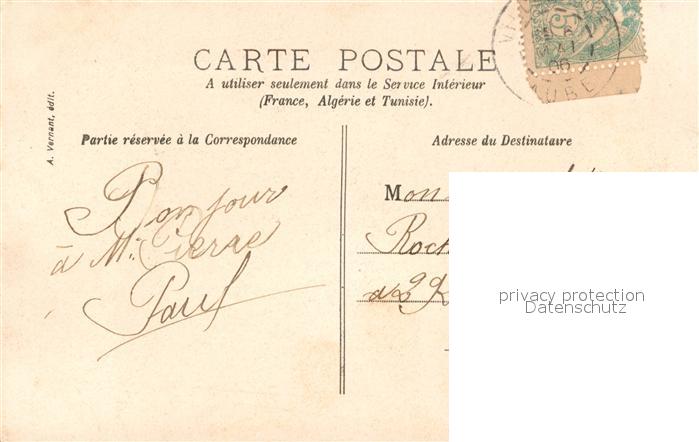 CARTE POSTALE
A utiliser seulement dans le Service Intérieur
(France, Algérie et Tunisie).
A. Vernant, édit.
Partie réservée à la Correspondance
Bonjour
à Mr Pierre
Paul
Adresse du Destinataire
Mon
Roch
privacy protection
Datenschutz
5
AUBE